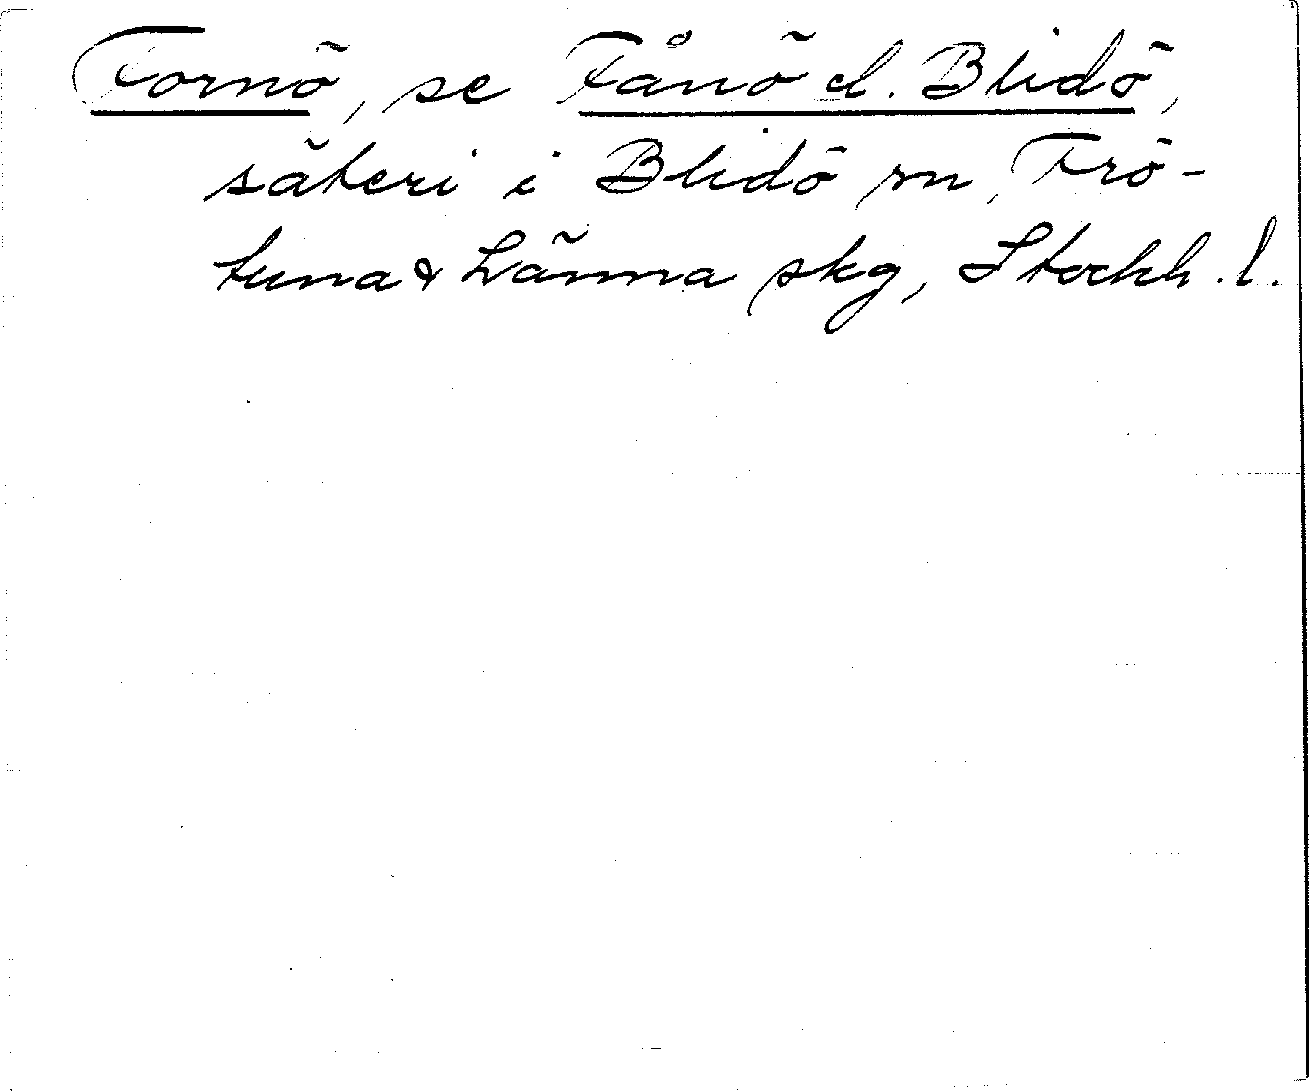 Fornö, se Fånö el. Blidö,
säteri i Blidö sn, Frö-
tuna & Länna skg, Stockh. l.